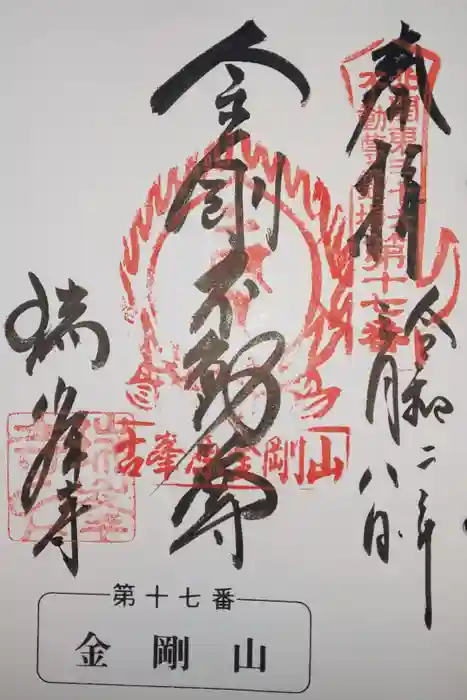 奉拝
北関東三十六
不動尊霊場
第十七番
令和二年
三月八日
金剛不動尊
古峯原金剛山
瑞峯寺
第十七番
金剛山